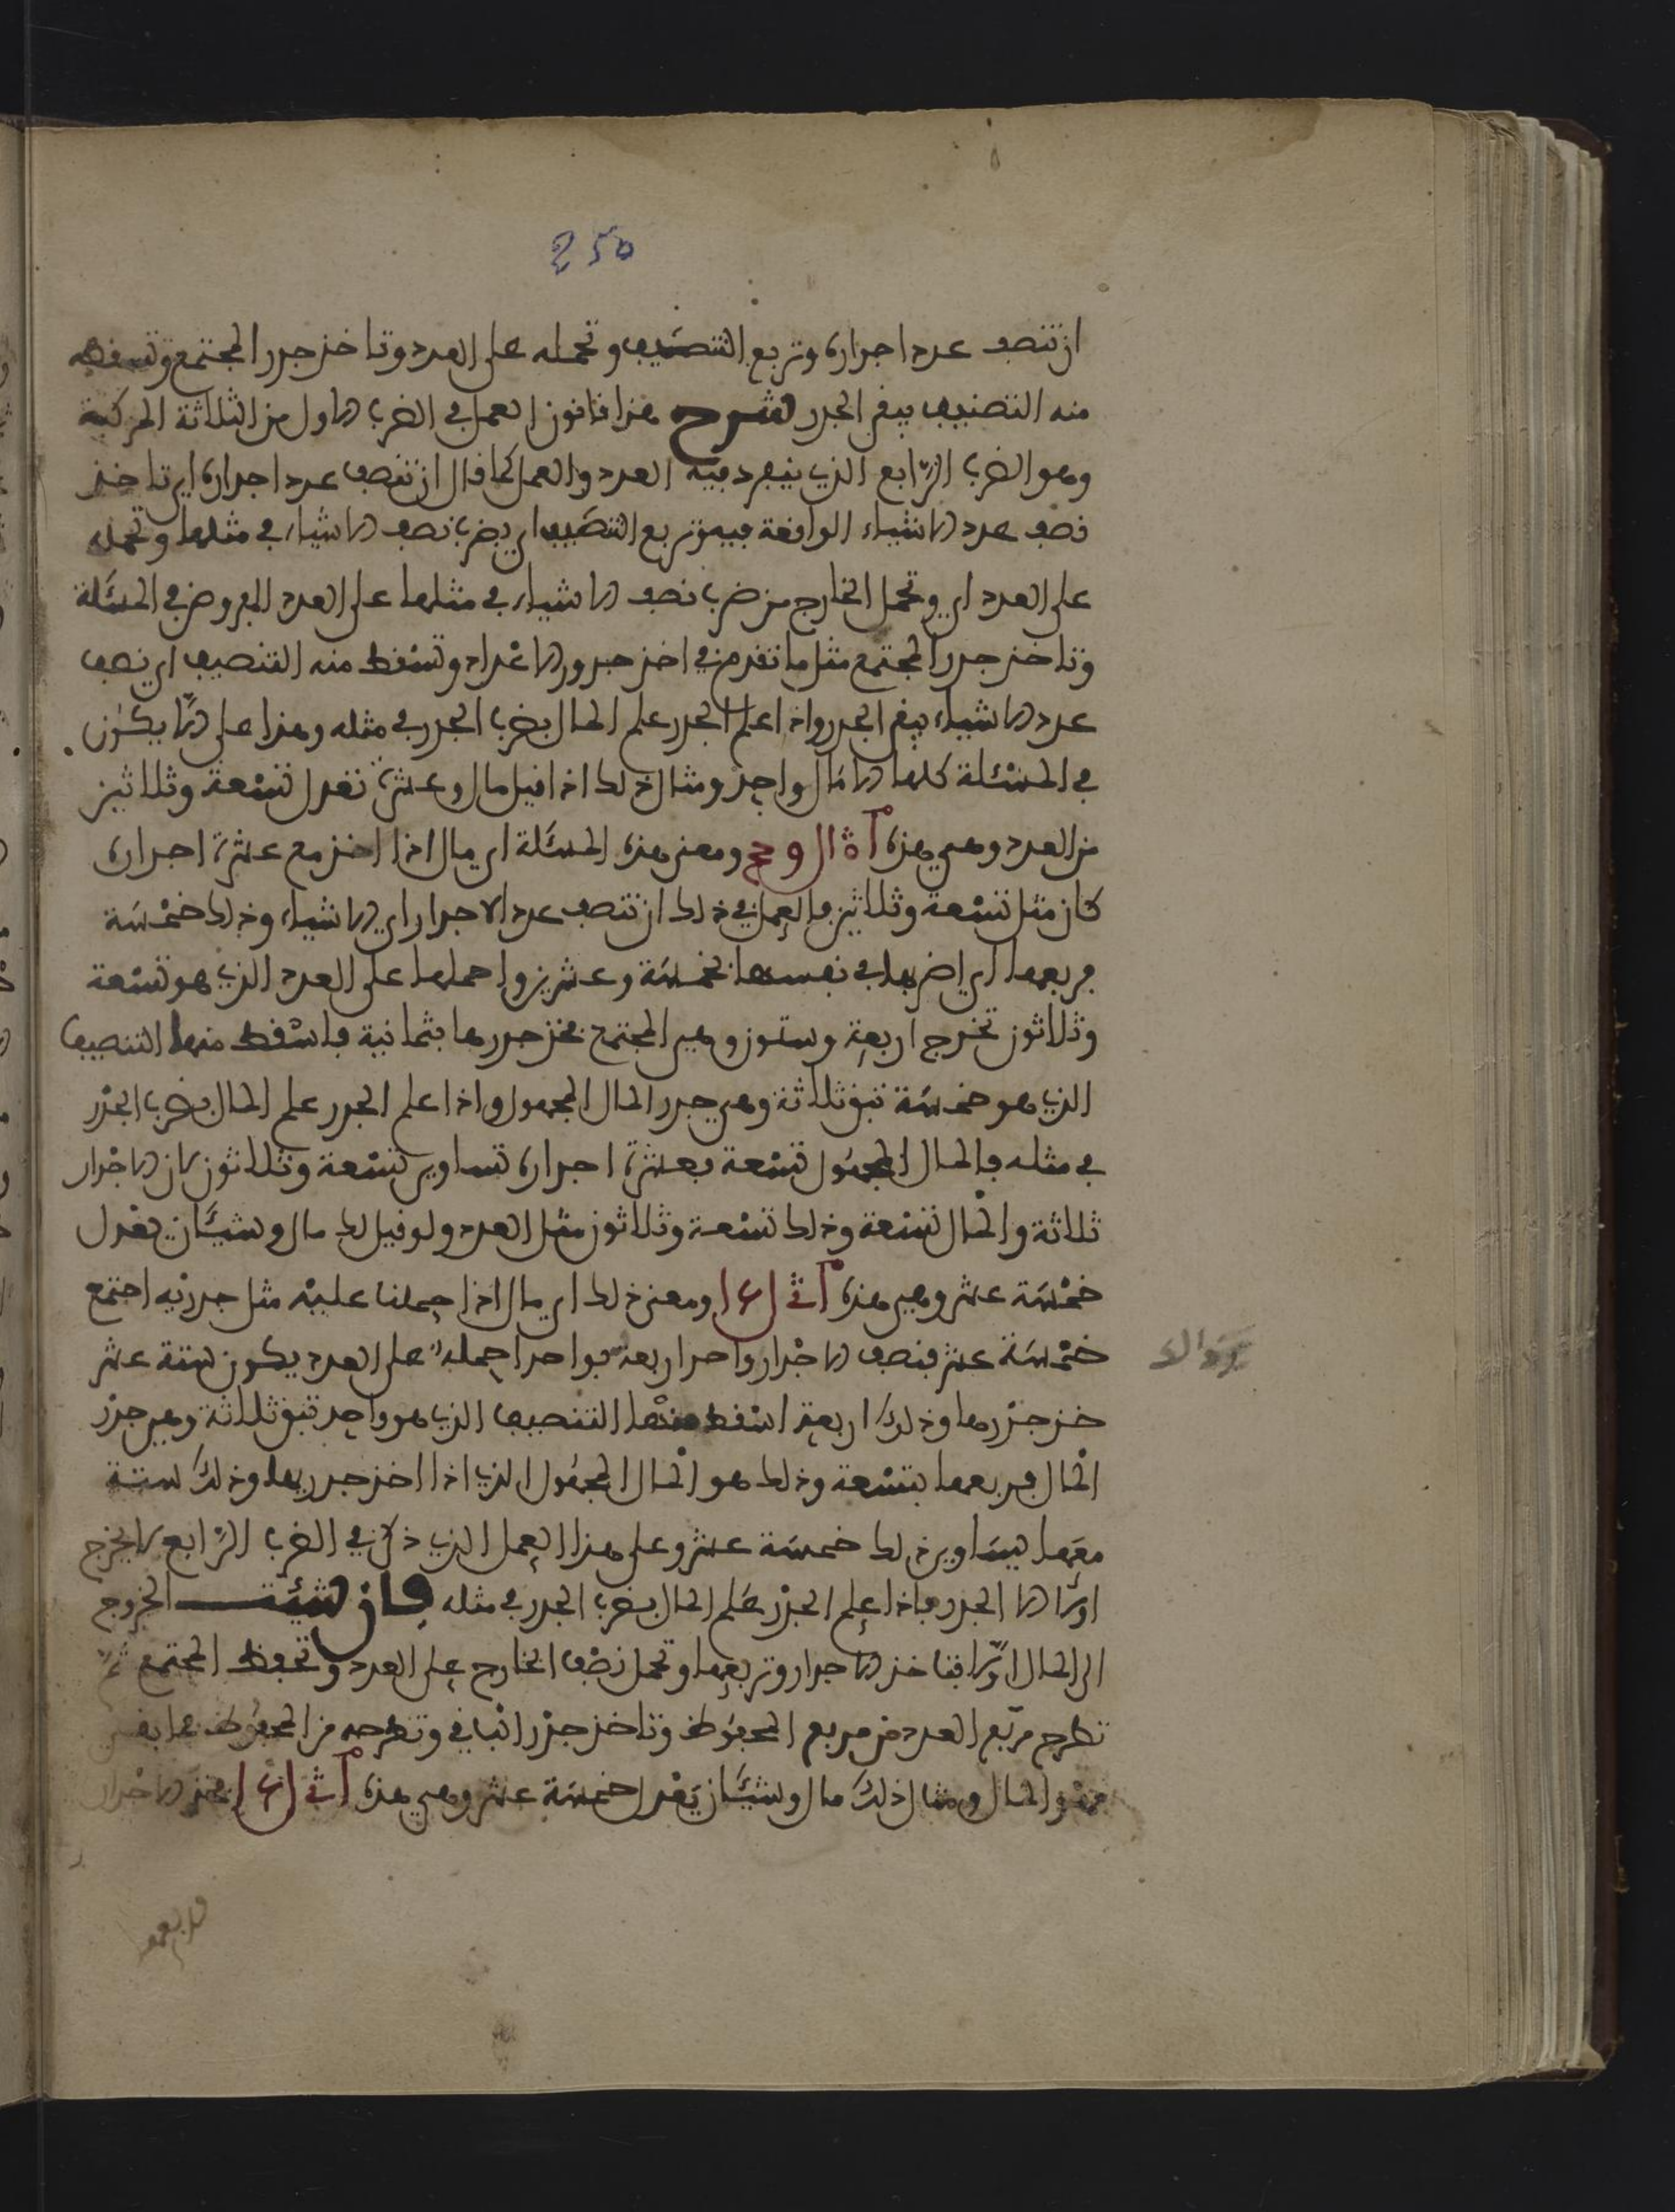 250
ان تنصف عدد اجذاره وتربع التنصيف وتحمله على العدد وتاخذ جذر المجتمع وتسقط
منه التنصيف يبقى الجذر شرح هذا قانون العمل في الضرب الاول من الثلاثة المركبة
وهو الضرب الرّابع الذي ينفرد فيه العدد والعمل كما قال ان تنصف عدد اجذاره اي تاخذ
نصف عدد الاشياء الواقعة فيه وتربع التنصيف اي يضرب نصف الاشياء في مثلها وتحمله
على العدد اي وتحمل الخارج من ضرب نصف الاشياء في مثلها على العدد المفروض في المسئلة
وتاخذ جذر المجتمع مثل ما تقدم في اخذ جذور الاعداد وتسقط منه التنصيف اي نصف
عدد الاشياء يبقى الجذر واذا علم الجذر علم المال بضرب الجذر في مثله وهذا على الا يكون
في المسئلة كلها الا مال واحد ومثال ذلك اذا قيل مال وعشرة تعدل تسعة وثلاثين
من العدد وهي هذه ومعنى هذه المسئلة اي مال اذا اخذ مع عشرة اجذاره
كان مثل تسعة وثلاثين فالعمل في ذلك ان تنصف عدد الاجذار اي الاشياء وذلك خمسة
فربعها اي اضربها في نفسها بخمسة وعشرين واحملها على العدد الذي هو تسعة
وثلاثون تخرج اربعة وستون وهي المجتمع فخذ جذرها بثمانية فاسقط منها التنصيف
الذي هو خمسة تبق ثلاثة وهي جذر المال المجهول واذا علم الجذر علم المال بضرب الجذر
في مثله فالمال المجهول تسعة بعشرة اجذاره تساوي تسعة وثلاثون لان الاجذار
ثلاثة والمال تسعة وذلك تسعة وثلاثون مثل العدد ولو قيل لك مال وشيئان يعدل
خمسة عشر وهي هذه ومعنى ذلك اي مال اذا حملنا عليه مثل جذريه اجتمع
خمسة عشر فنصف الاجذار واحد اربعه بواحد احمله على العدد يكون ستة عشر
خذ جذرها وذلك اربعة اسقط منها التنصيف الذي هو واحد تبق ثلاثة وهي جذر
المال فربعها بتسعة وذلك هو المال المجهول الذي اذا اخذ جذريها وذلك ستة
معها يساوي ذلك خمسة عشر وعلى هذا العمل الذي ذكر في الضرب الرابع لا يخرج
اولا الا الجذر فاذا علم الجذر علم المال بضرب الجذر في مثله فان شئت الخروج
الى المال اولا فتاخذ الاجذار وتربعها وتحمل نصف الخارج على العدد وتحفظ المجتمع ثم
تطرح مربع العدد من مربع المحفوظ وتاخذ جذر الباقي وتطرحه من المحفوظ فما بقي
فهو المال ومثال ذلك مال وشيئان يعدل خمسة عشر وهي هذه فخذ الاجذار
فربعه